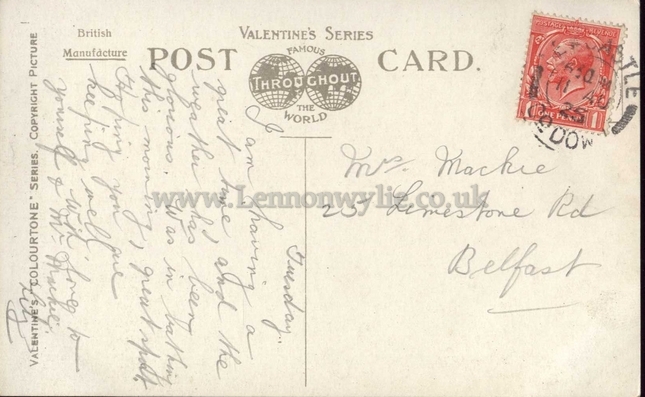 British
Manufacture
VALENTINE'S SERIES
POST CARD.
FAMOUS
THROUGHOUT
THE
WORLD
VALENTINE'S "COLOURTONE" SERIES. COPYRIGHT PICTURE
Tuesday.
I am having a
great time, and the
weather has been
glorious. Was in bathing
this morning, great sport.
Hoping you are
keeping well
with love to
yourself & Mr Mackie.
Mrs. Mackie
25 Limestone Rd
Belfast
POSTAGE REVENUE
ONE PENNY
1 1
CO DOWN
www.Lennonwylie.co.uk